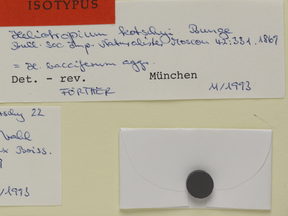 ISOTYPUS
Heliotropium kotschyi Bunge
Bull. Soc. Imp. Naturalistes Moscou 42: 331. 1869
= H. bacciferum agg.
Det. - rev. München
FÖRTHER 11/1993
22
Vahl
Boiss.
1993